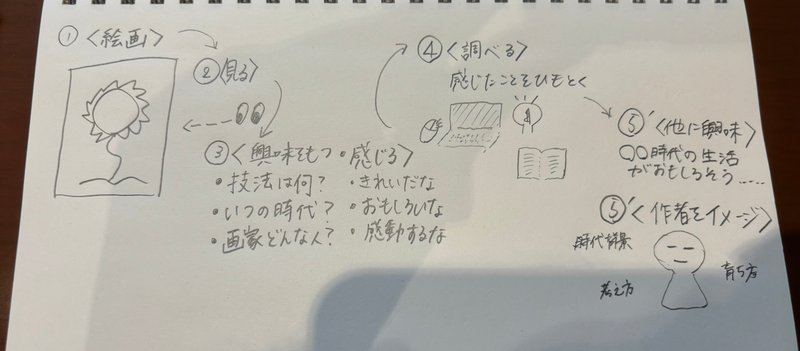 ① <絵画>
② <見る>
③ <興味をもつ・感じる>
・技法は何? ・きれいだな
・いつの時代? ・おもしろいな
・画家どんな人? ・感動するな
④ <調べる>
感じたことをひもとく
⑤ <他に興味>
○○時代の生活
がおもしろそう……
⑤' <作者をイメージ>
時代背景
考え方
育ち方